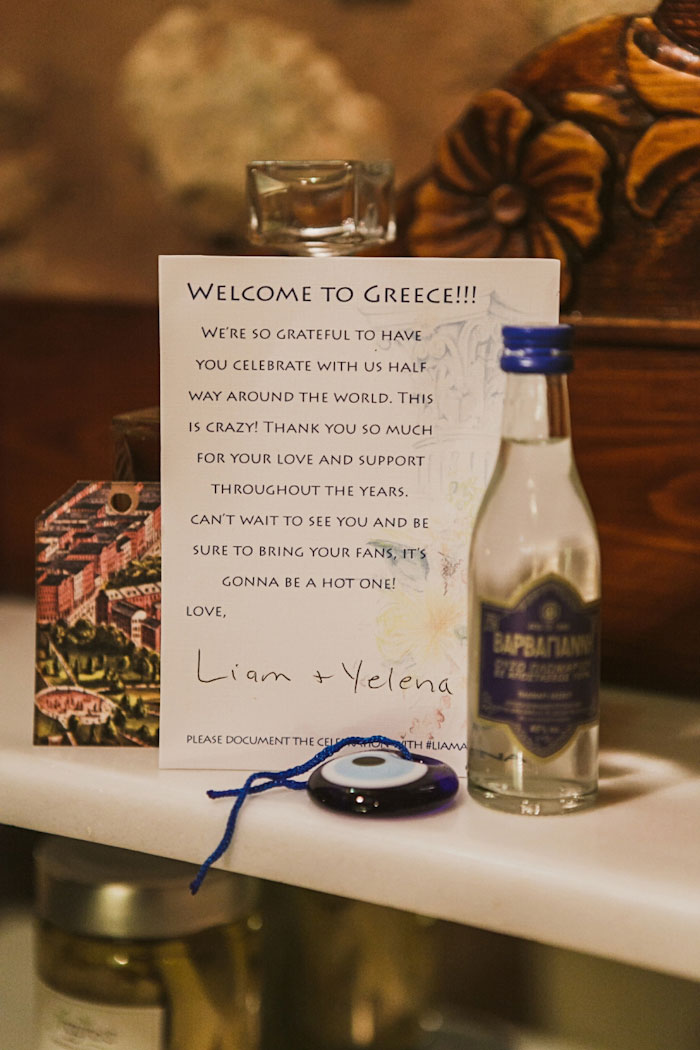 WELCOME TO GREECE!!!
WE'RE SO GRATEFUL TO HAVE
YOU CELEBRATE WITH US HALF
WAY AROUND THE WORLD. THIS
IS CRAZY! THANK YOU SO MUCH
FOR YOUR LOVE AND SUPPORT
THROUGHOUT THE YEARS.
CAN'T WAIT TO SEE YOU AND BE
SURE TO BRING YOUR FANS, IT'S
GONNA BE A HOT ONE!
LOVE,
Liam + Yelena
PLEASE DOCUMENT THE CELEBRATION WITH #LIAMA
ΒΑΡΒΑΓΙΑΝΝΗ
ΟΥΖΟ ΠΛΩΜΑΡΙΟΥ